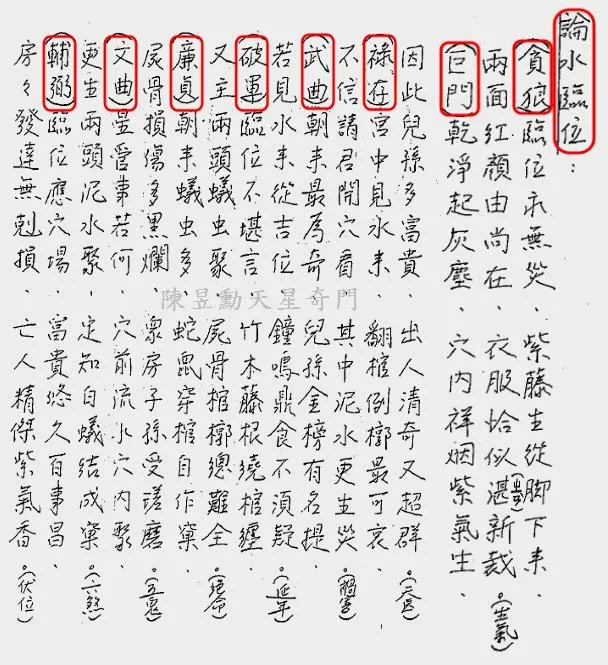 論水臨位：
(貪狼)臨位永無災．紫藤生從脚下来．
兩面紅顏由尚在．衣服恰似湛新裁。(生氣)
(巨門)乾淨起灰塵．穴內祥烟紫氣生．
因此兒孫多富貴．出人清奇又超群。(天医)
(祿在)宮中見水来．翻棺倒槨最可哀
不信請君開穴看．其中泥水更生災。(禍害)
(武曲)朝来最為奇．兒孫金榜有名提
若見水来從吉位．鐘鳴鼎食不須疑。(延年)
(破軍)臨位不堪言．竹木藤根繞棺纏
又主兩頭蟻虫聚．屍骨棺槨總難全。(絕命)
(廉貞)朝来蟻虫多．蛇鼠穿棺自作窠
屍骨損傷多黑爛．眾房子孫受磋磨。(五鬼)
(文曲)星管事若何．穴前流水穴內聚
更生兩頭泥水聚．定知白蟻結成窠。(六煞)
(輔弼)臨位應穴場．富貴悠久百事昌．
房々發達無剋損．亡人精傑紫氣香。(伏位)
陳昱勳天星奇門